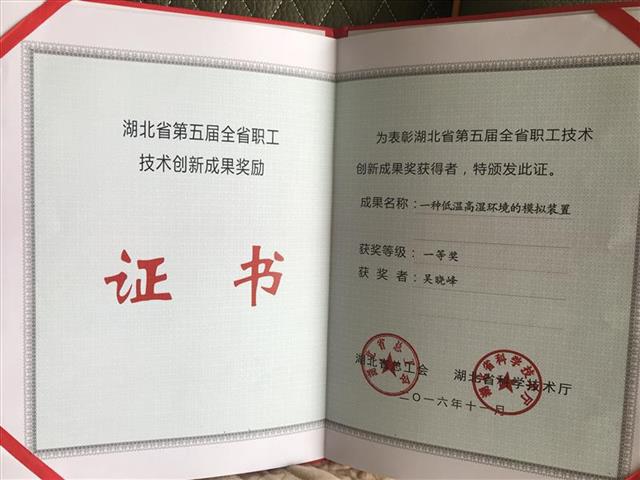 湖北省第五届全省职工
技术创新成果奖励
证书
为表彰湖北省第五届全省职工技术
创新成果奖获得者，特颁发此证。
成果名称：一种低温高湿环境的模拟装置
获奖等级：一等奖
获奖者：吴晓峰
湖北省总工会 湖北省科学技术厅
二〇一六年十一月
湖北省总工会
湖北省科学技术厅